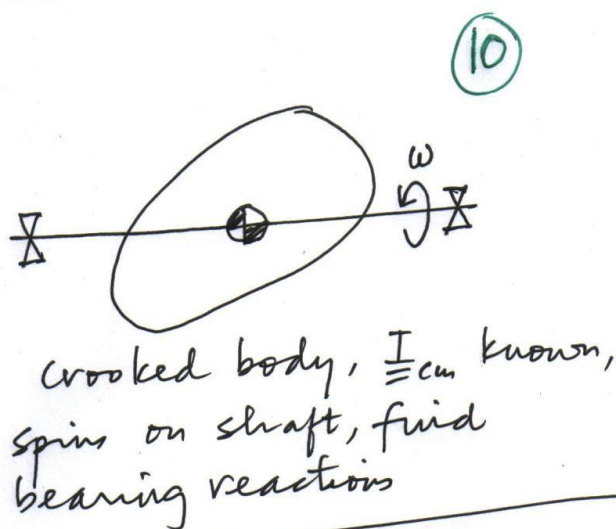 10
ω
crooked body, I cm known,
spins on shaft, find
bearing reactions